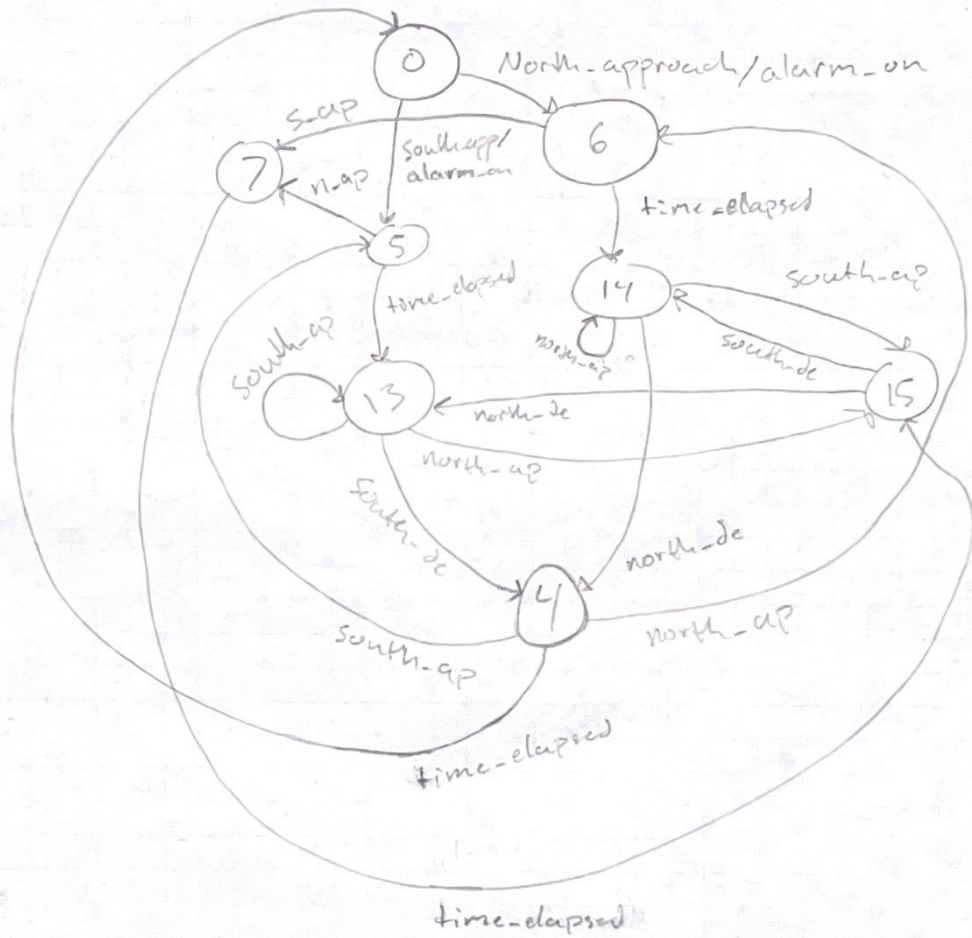 0
North_approach/alarm_on
s_ap
6
southapp/
alarm_on
7
n_ap
time_elapsed
5
south_ap
14
time_elapsed
south_ap
north_ap
south_de
13
15
north_de
north_ap
south_de
north_de
4
north_ap
south_ap
time_elapsed
time_elapsed